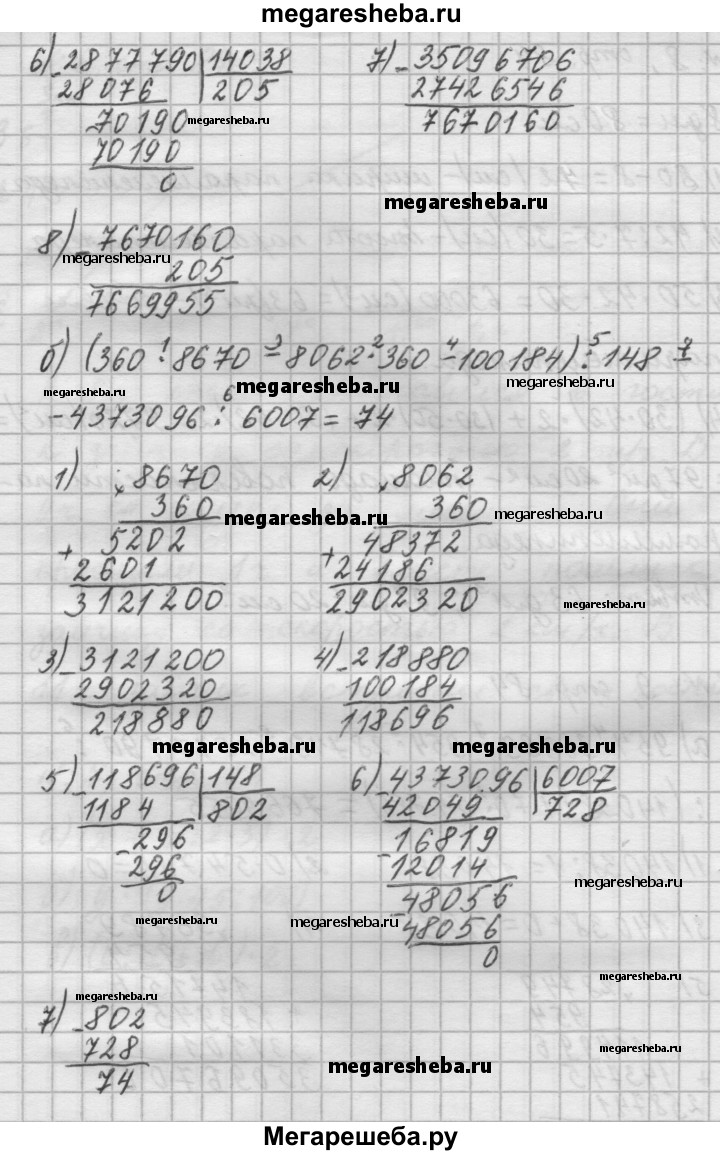 megaresheba.ru
6) - 2877790 | 14038 7) - 35096706
28076 | 205 27426546
- 70190 megaresheba.ru 7670160
70190
0
megaresheba.ru
8) - 7670160
megaresheba.ru 205
7669955
б) (360 · 8670 - 8062 · 360 - 100184) : 148 -
1 3 2 4 5 7
megaresheba.ru megaresheba.ru megaresheba.ru
- 4373096 : 6007 = 74
6
1) × 8670 2) × 8062
360 megaresheba.ru 360 megaresheba.ru
+ 5202 + 48372
2601 24186
3121200 2902320 megaresheba.ru
3) - 3121200 4) - 218880
2902320 100184
218880 118696
megaresheba.ru megaresheba.ru
5) - 118696 | 148 6) - 4373096 | 6007
1184 | 802 42049 | 728
- 296 - 16819
296 12014
0 - 48056 megaresheba.ru
megaresheba.ru megaresheba.ru 48056
0
megaresheba.ru
megaresheba.ru
7) - 802
728 megaresheba.ru
74
Мегарешеба.ру